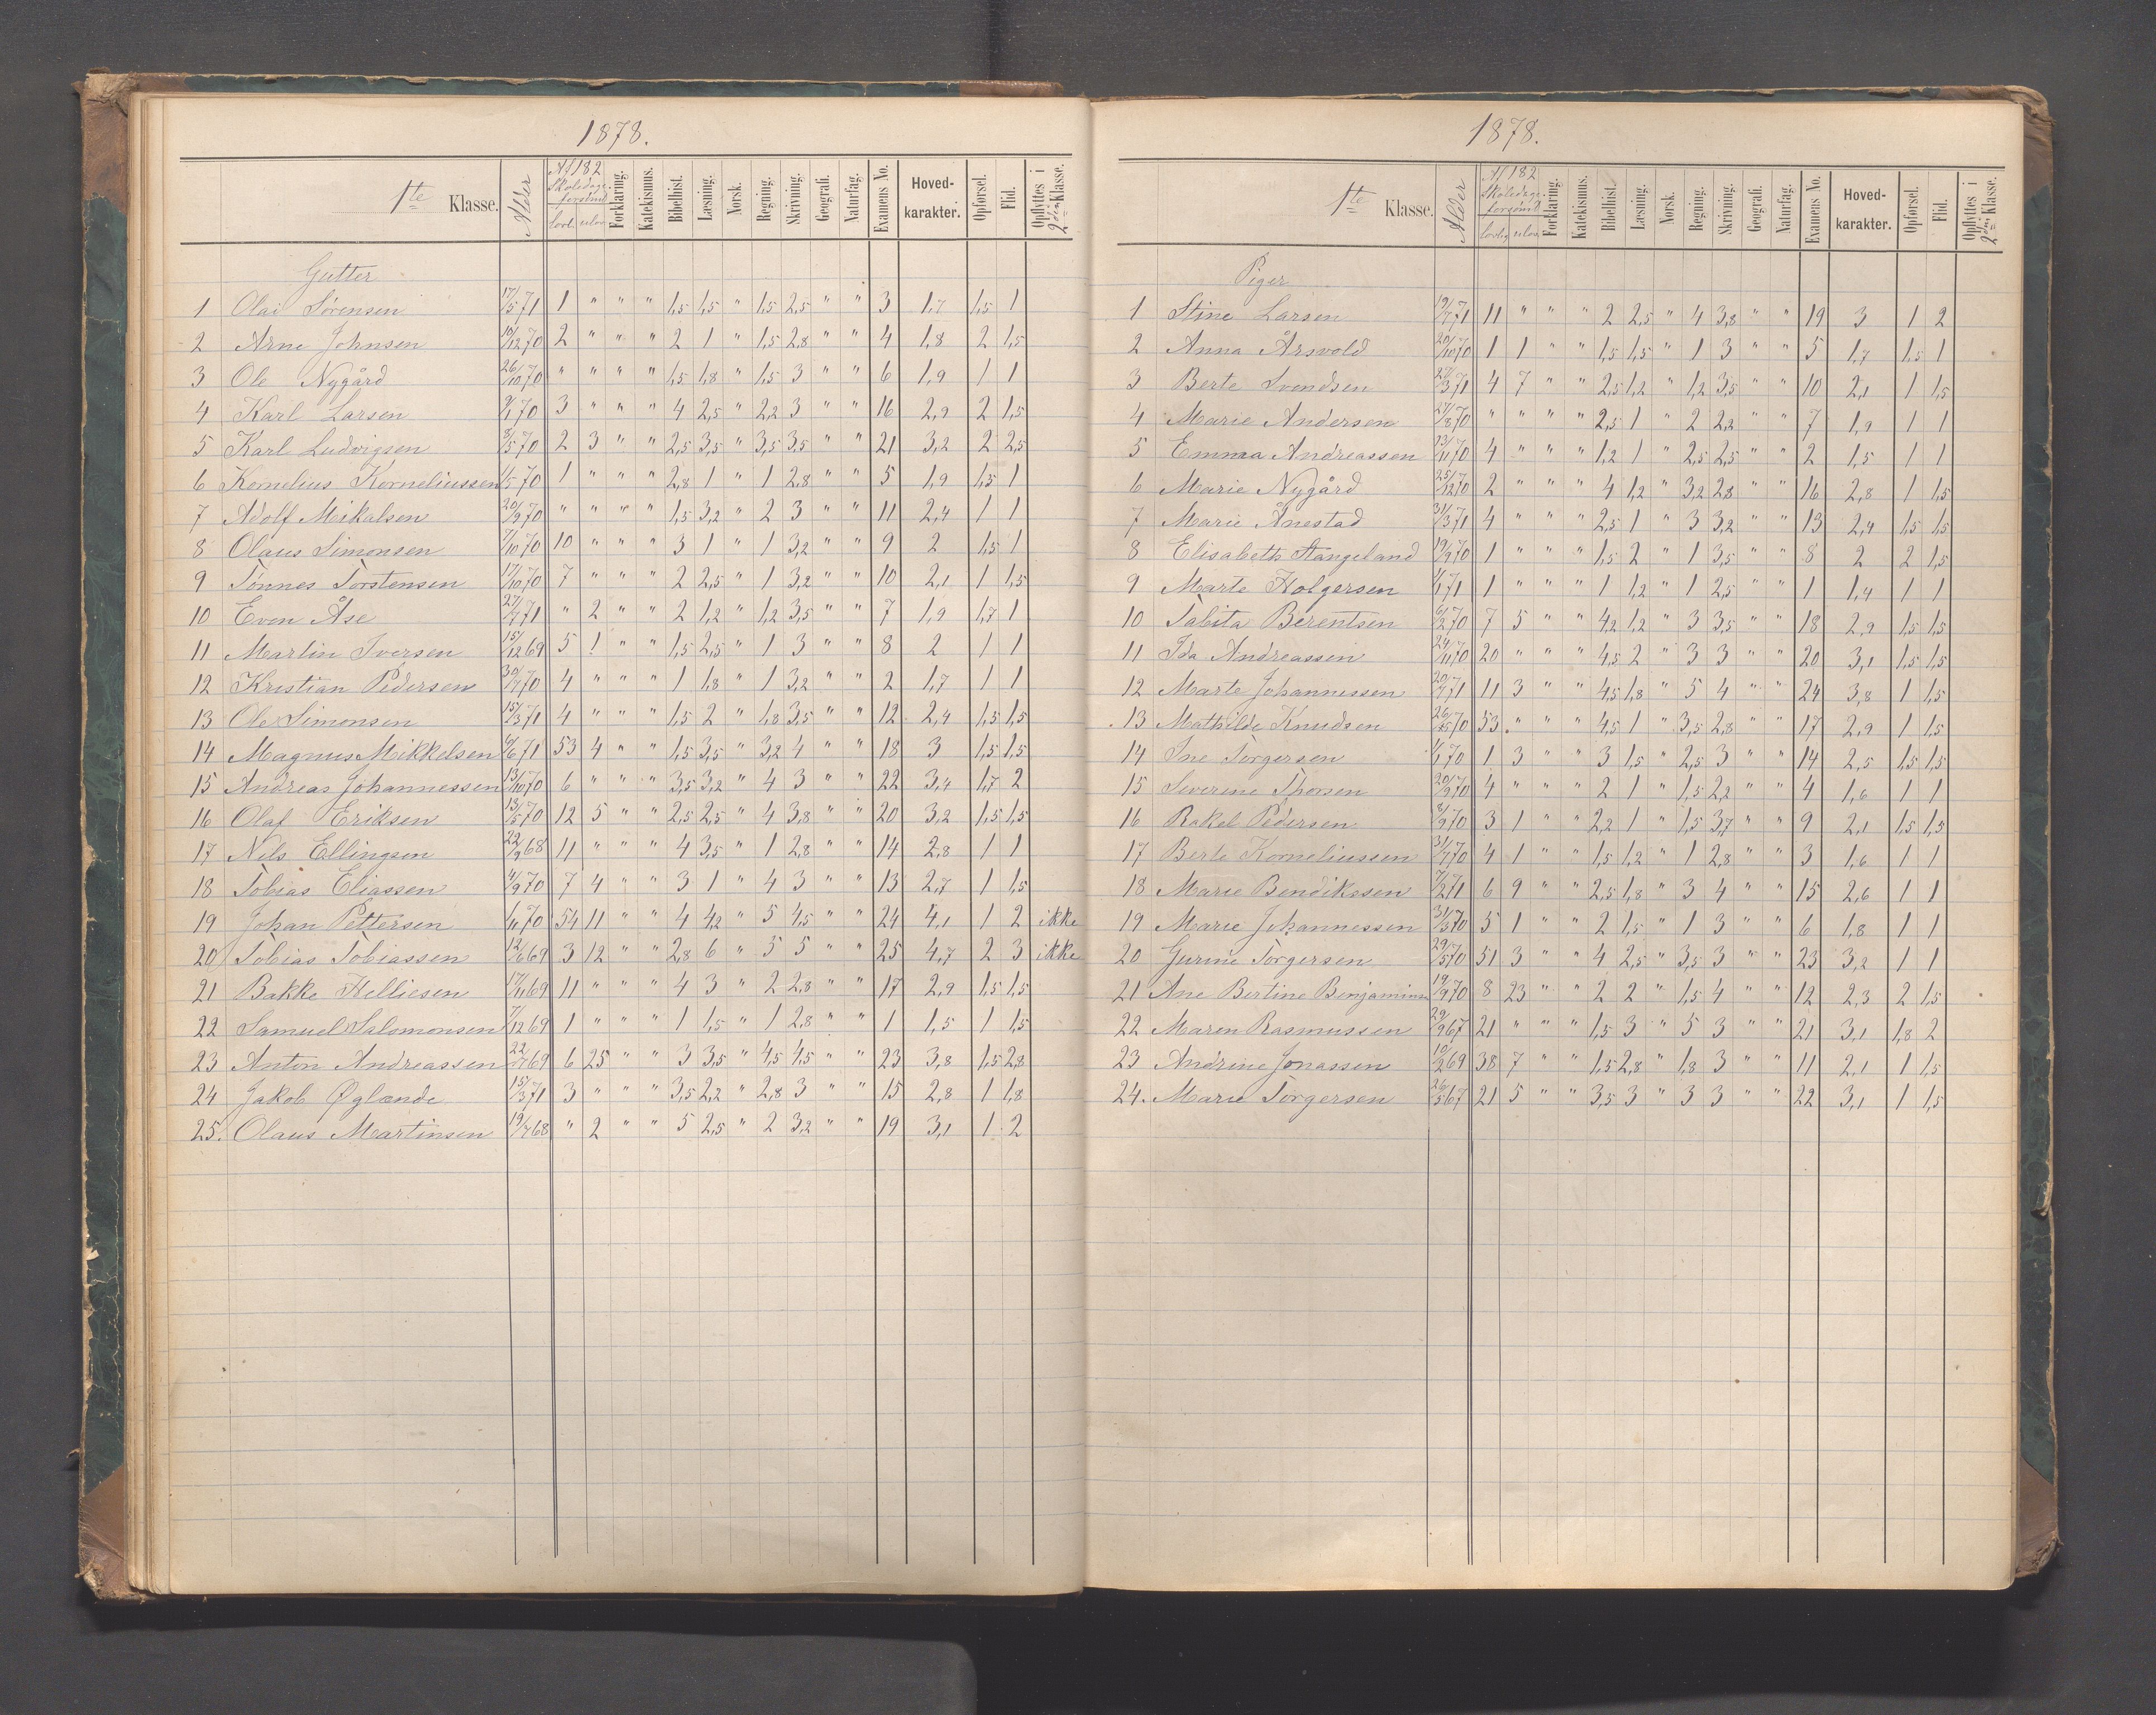 1878.
1te Klasse. Alder Af 182 Skoledage forsømt lovl. ulov. Forklaring. Katekismus. Bibelhist. Læsning. Norsk. Regning. Skrivning. Geografi. Naturfag. Examens No. Hoved-karakter. Opførsel. Flid. Opflyttes i 2den Klasse.
Gutter
1 Olai Sørensen 17/5 71 1 " " " 1,5 1,5 " 1,5 2,5 " " 3 1,7 1,5 1
2 Arne Johnsen 16/12 70 2 " " " 2 1 " 1,5 2,8 " " 4 1,8 2 1,5
3 Ole Nygård 26/10 70 " " " " 1,5 1,8 " 1,5 3 " " 6 1,9 1 1
4 Karl Larsen 9/1 70 3 " " " 4 2,5 " 2,2 3 " " 16 2,9 2 1,5
5 Karl Ludvigsen 8/5 70 2 3 " " 2,5 3,5 " 3,5 3,5 " " 21 3,2 2 2,5
6 Kornelius Korneliussen 1/5 70 1 " " " 2,8 1 " 1 2,8 " " 5 1,9 1,5 1
7 Adolf Mikalsen 20/9 70 " " " " 1,5 3,2 " 2 3 " " 11 2,4 1 1
8 Olaus Simonsen 7/10 70 10 " " " 3 1 " 1 3,2 " " 9 2 1,5 1
9 Tønnes Torstensen 17/10 70 7 " " " 2 2,5 " 1 3,2 " " 10 2,1 1 1,5
10 Even Åse 27/7 71 " 2 " " 2 1,2 " 1,2 3,5 " " 7 1,9 1,7 1
11 Martin Iversen 15/12 69 5 1 " " 1,5 2,5 " 1 3 " " 8 2 1 1
12 Kristian Pedersen 30/7 70 4 " " " 1 1,8 " 1 3,2 " " 2 1,7 1 1
13 Ole Simonsen 15/3 71 4 " " " 1,5 2 " 1,8 3,5 " " 12 2,4 1,5 1,5
14 Magnus Mikkelsen 6/6 71 53 4 " " 1,5 3,5 " 3,2 4 " " 18 3 1,5 1,5
15 Andreas Johannessen 13/10 70 6 " " " 3,5 3,2 " 4 3 " " 22 3,4 1,7 2
16 Olaf Eriksen 13/5 70 12 5 " " 2,5 2,5 " 4 3,8 " " 20 3,2 1,5 1,5
17 Nils Ellingsen 22/9 68 11 " " " 4 3,5 " 1 2,8 " " 14 2,8 1 1
18 Tobias Eliassen 4/9 70 7 4 " " 3 1 " 4 3 " " 13 2,7 1 1,5
19 Johan Pettersen 1/11 70 54 11 " " 4 4,2 " 5 4,5 " " 24 4,1 1 2 ikke
20 Tobias Tobiassen 12/6 69 3 12 " " 2,8 6 " 5 5 " " 25 4,7 2 3 ikke
21 Bakke Helliesen 17/11 69 11 " " " 4 3 " 2 2,8 " " 17 2,9 1,5 1,5
22 Samuel Salomonsen 7/12 69 1 " " " 1 1,5 " 1 2,8 " " 1 1,5 1 1,5
23 Anton Andreassen 22/7 69 6 25 " " 3 3,5 " 4,5 4,5 " " 23 3,8 1,5 2,8
24 Jakob Øglænde 15/3 71 3 " " " 3,5 2,2 " 2,8 3 " " 15 2,8 1 1,8
25. Olaus Martinsen 19/7 68 " 2 " " 5 2,5 " 2 3,2 " " 19 3,1 1 2
1878.
1te Klasse. Alder Af 182 Skoledage forsømt lovlig ulov. Forklaring. Katekismus. Bibelhist. Læsning. Norsk. Regning. Skrivning. Geografi. Naturfag. Examens No. Hoved-karakter. Opførsel. Flid. Opflyttes i 2den Klasse.
Piger
1 Stine Larsen 19/7 71 11 " " " 2 2,5 " 4 3,8 " " 19 3 1 2
2 Anna Årsvold 20/10 70 1 1 " " 1,5 1,5 " 1 3 " " 5 1,7 1,5 1
3 Berte Svendsen 27/3 71 4 7 " " 2,5 1,2 " 1,2 3,5 " " 10 2,1 1 1,5
4 Marie Andersen 27/8 70 " " " " 2,5 1 " 2 2,2 " " 7 1,9 1 1
5 Emma Andreassen 13/11 70 4 " " " 1,2 1 " 2,5 2,5 " " 2 1,5 1 1
6 Marie Nygård 25/12 70 2 " " " 4 1,2 " 3,2 2,8 " " 16 2,8 1 1,5
7 Marie Ånestad 31/3 71 4 " " " 2,5 1 " 3 3,2 " " 13 2,4 1,5 1,5
8 Elisabeth Stangeland 19/9 70 1 " " " 1,5 2 " 1 3,5 " " 8 2 2 1,5
9 Marte Holgersen 1/1 71 1 " " " 1 1,2 " 1 2,5 " " 1 1,4 1 1
10 Tabita Berentsen 6/2 70 7 5 " " 4,2 1,2 " 3 3,5 " " 18 2,9 1,5 1,5
11 Ida Andreassen 24/11 70 20 " " " 4,5 2 " 3 3 " " 20 3,1 1,5 1,5
12 Marte Johannessen 20/7 71 11 3 " " 4,5 1,8 " 5 4 " " 24 3,8 1 1,5
13 Mathilde Knudsen 26/5 70 53 " " " 4,5 1 " 3,5 2,8 " " 17 2,9 1 1,5
14 Ine Torgersen 1/1 70 1 3 " " 3 1,5 " 2,5 3 " " 14 2,5 1,5 1,5
15 Severine Thorsen 20/9 70 4 " " " 2 1 " 1,5 2,2 " " 4 1,6 1 1
16 Rakel Pedersen 8/9 70 3 1 " " 2,2 1 " 1,5 3,7 " " 9 2,1 1,5 1,5
17 Berte Korneliussen 31/7 70 4 1 " " 1,5 1,2 " 1 2,8 " " 3 1,6 1 1
18 Marie Bendiksen 7/2 71 6 9 " " 2,5 1,8 " 3 4 " " 15 2,6 1 1
19 Marie Johannessen 31/3 70 5 1 " " 2 1,5 " 1 3 " " 6 1,8 1 1
20 Gurine Torgersen 29/5 70 51 3 " " 4 2,5 " 3,5 3 " " 23 3,2 1 1
21 Ane Bertine Benjaminsen 19/9 70 8 23 " " 2 2 " 1,5 4 " " 12 2,3 2 1,5
22 Maren Rasmussen 29/9 67 21 " " " 1,5 3 " 5 3 " " 21 3,1 1,8 2
23 Andrine Jonassen 10/2 69 38 7 " " 1,5 2,8 " 1,8 3 " " 11 2,1 1 1,5
24. Marie Torgersen 26/5 67 21 5 " " 3,5 3 " 3 3 " " 22 3,1 1 1,5